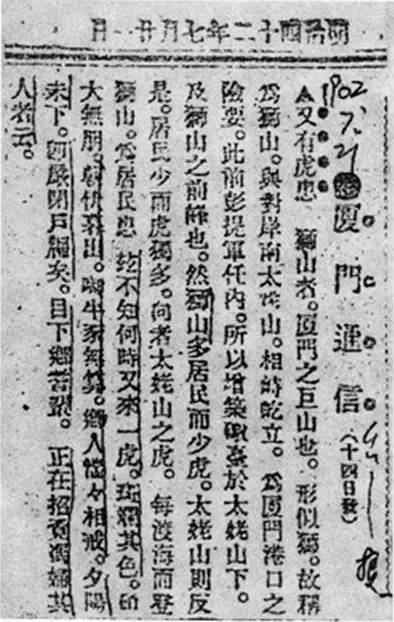 明治四十二年七月廿一日
1902
7.21
廈門通信(十四日發)
▲又有虎患 獅山者。廈門之巨山也。形似獅。故稱
為獅山。與對岸南太姥山。相峙屹立。為廈門港口之
險要。此前彭提軍任內。所以增築礮臺於太姥山下。
及獅山之前峰也。然獅山多居民而少虎。太姥山則反
是。居民少而虎獨多。向者太姥山之虎。每渡海而登
獅山。為居民患 茲不知何時又來一虎。斑斕其色。
大無朋。朝伏暮出。啣牛豕無算。鄉人々相戒。夕陽
未下。即嚴閉戶牖矣。目下鄉耆。正在招募馮婦其
人者云。